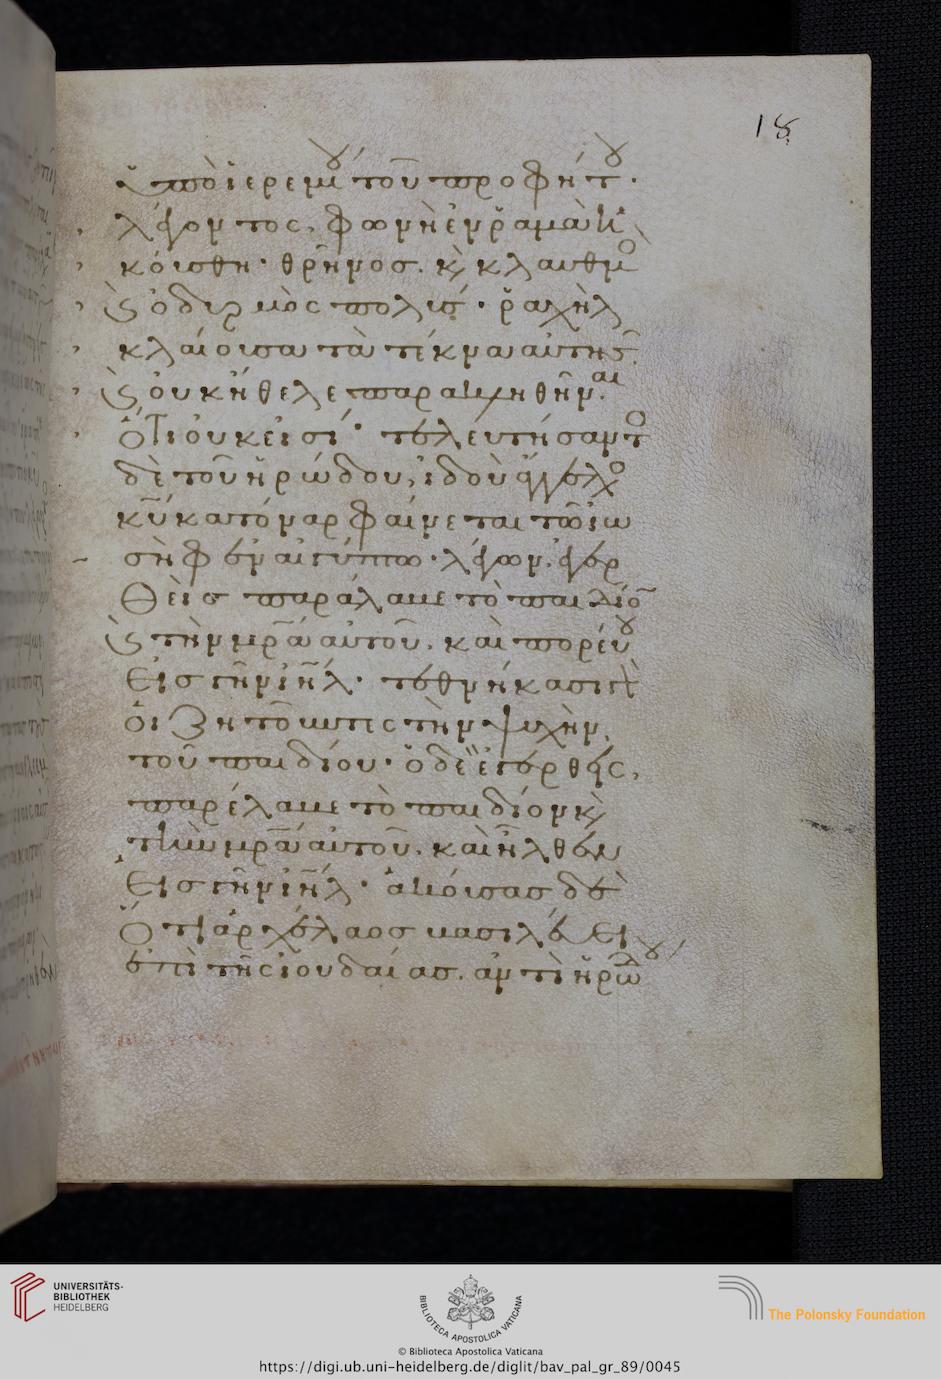 18
ὑπὸ ἱερεμίου τοῦ προφήτου·
λέγοντος. φωνὴ ἐν ῥαμᾶ ἠ
κούσθη· θρῆνοσ. κὲ κλαυθμὸ
ς ὀδυρμὸς πολύς· ῥαχὴλ
κλαίουσα τὰ τέκνα αὐτῆς.
κ οὐκ ἤθελε παρακληθῆναι.
ὅτι οὐκ εἰσί· τελευτήσαντο
δὲ τοῦ ἡρώδου, ἰδοὺ ἄγγελο
κυ κατόναρ φαίνεται τῶ ἰω
σὴφ ἐν αἰγύπτω· λέγων. ἐγερ
θεὶσ παράλαβε τὸ παιδίο
κ τὴν μρα αὐτοῦ. καὶ πορεύου
εἰσ γῆν ιηλ· τεθνήκασι γὰ
οἱ ζητοῦντες τὴν ψυχὴν
τοῦ παιδίου· ὁ δὲ ἐγερθείς,
παρέλαβε τὸ παιδίον κὲ
τὴν μρα αὐτοῦ. καὶ ἦλθεν
εἰσ γῆν ιηλ· ἀκούσας δὲ
ὅτι ἀρχέλαος βασιλεύει
ἐπὶ τῆς ἰουδαίασ. ἀντὶ ἡρώδου
UNIVERSITÄTS-
BIBLIOTHEK
HEIDELBERG
BIBLIOTECA APOSTOLICA VATICANA
The Polonsky Foundation
© Biblioteca Apostolica Vaticana
https://digi.ub.uni-heidelberg.de/diglit/bav_pal_gr_89/0045